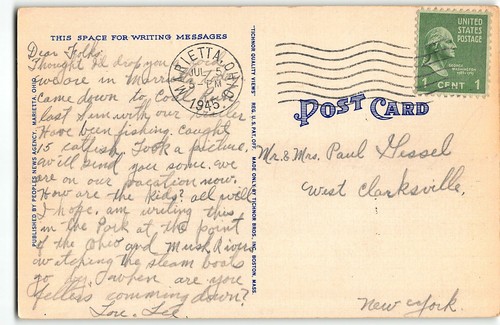 THIS SPACE FOR WRITING MESSAGES
Dear Folks:
Thought I'd drop you a
we are in Marietta
came down to
last Sun. with our
Have been fishing. Caught
15 catfish. Took a picture.
we'll send you some. we
are on our vacation now.
How are the kids? all well
I hope. am writing this
in the Park at the point
of the Ohio and Musk. Rivers
watching the steam boats
go by. when are you
fellers comming down?
Love, Lee
PUBLISHED BY PEOPLES NEWS AGENCY, MARIETTA, OHIO
"TICHNOR QUALITY VIEWS," REG. U. S. PAT. OFF. MADE ONLY BY TICHNOR BROS., INC., BOSTON, MASS.
MARIETTA, OHIO
JUL 5
5 PM
1945
UNITED STATES
POSTAGE
1 CENT 1
POST CARD
Mr. & Mrs. Paul Gessel
West Clarksville,
New York.